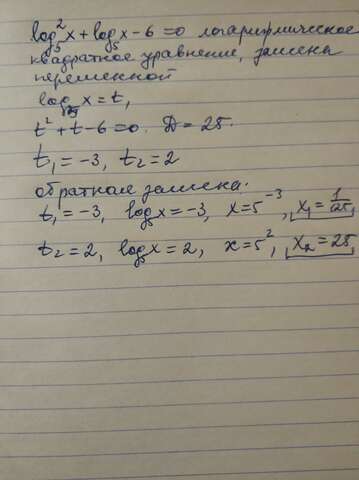 log₅²x + log₅x - 6 = 0 логарифмическое
квадратное уравнение, замена
переменной
log₅x = t,
t² + t - 6 = 0. D = 25.
t₁ = -3, t₂ = 2
обратная замена.
t₁ = -3, log₅x = -3, x = 5⁻³, x₁ = 1/125,
t₂ = 2, log₅x = 2, x = 5², x₂ = 25,